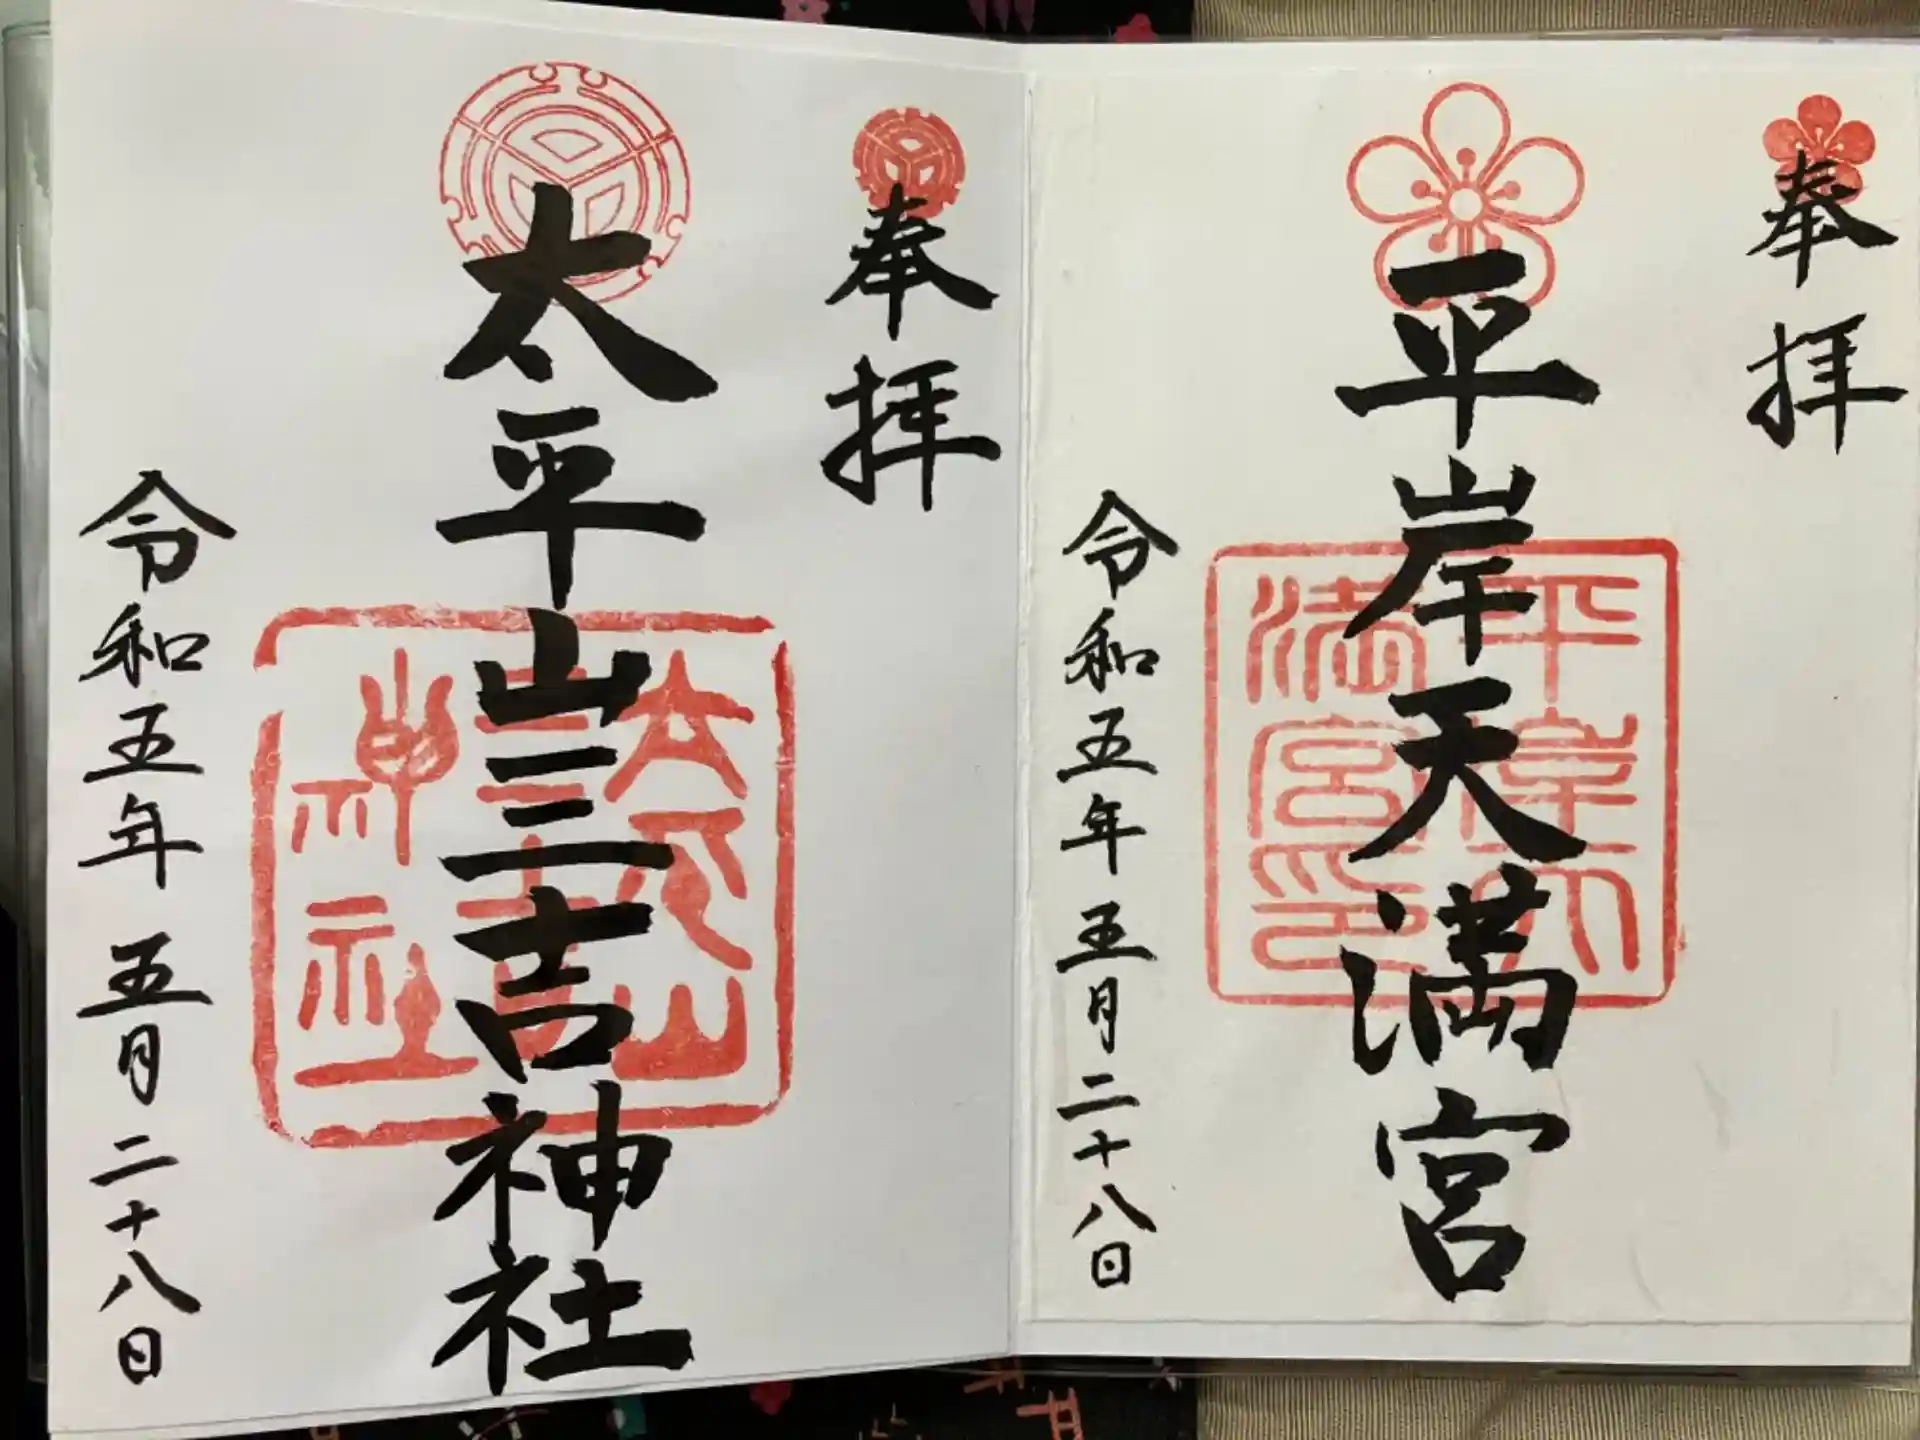 奉拝
平岸天満宮
平岸天
満宮印
令和五年五月二十八日
奉拝
太平山三吉神社
太平山
三吉
神社
令和五年五月二十八日